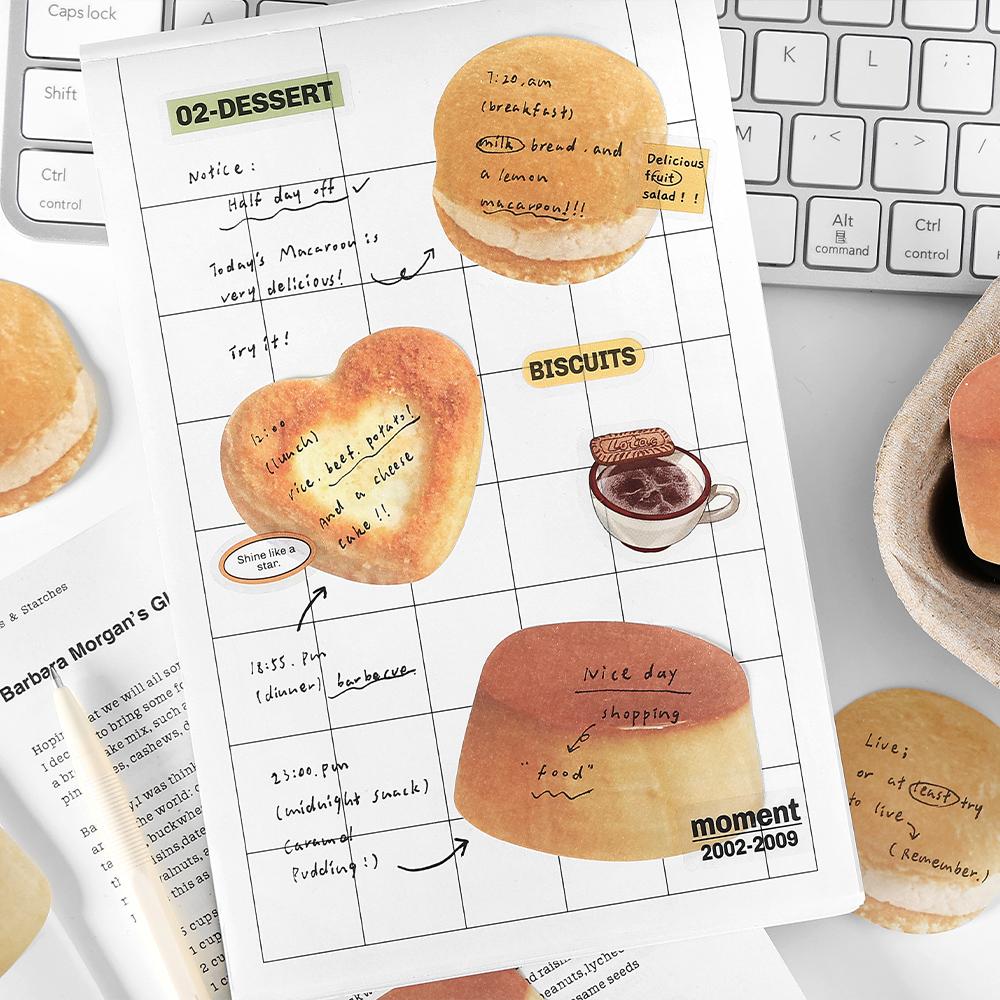 Caps lock
Shift
Ctrl
control
K
L
: ;
M
, <
. >
/
Alt
command
Ctrl
control
02-DESSERT
Notice:
Half day off ✓
Today's Macaroon is
very delicious!
Try it!
7:20.am
(breakfast)
milk bread. and
a lemon
macaroon!!!
Delicious
fruit
salad! !
12:00
(lunch)
rice. beef. potato!
And a cheese
cake !!
Shine like a
star.
BISCUITS
Lotus
18:55. pm
(dinner) barbecue
23:00.pm
(midnight snack)
Caramel
Pudding!)
Nice day
shopping
"food"
moment
2002-2009
Live;
or at least try
to live
(Remember.)
s & Starches
Barbara Morgan's Gl
at we will all
to bring some
cake mix, such a
cashews,
I was think
the world:
buckwhe
raisins, date
walnuts,
this as
5 cups
1 cup
2 cu
and raisin
peanuts, lychee
same seeds